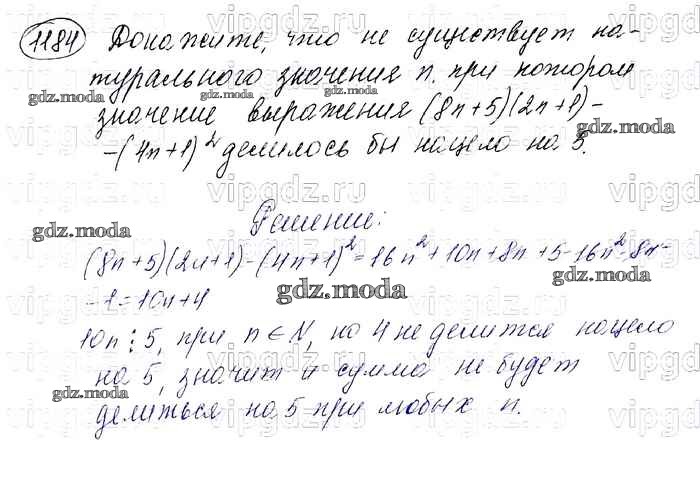 1184 Докажите, что не существует на-
турального значения n, при котором
значение выражения (8n+5)(2n+1)-
-(4n+1)² делилось бы нацело на 5.
Решение:
(8n+5)(2n+1)-(4n+1)²=16n²+10n+8n+5-16n²-8n-
-1=10n+4
10n⋮5, при n∈N, но 4 не делится нацело
на 5, значит и сумма не будет
делиться на 5 при любых n.
gdz.moda
vipgdz.ru